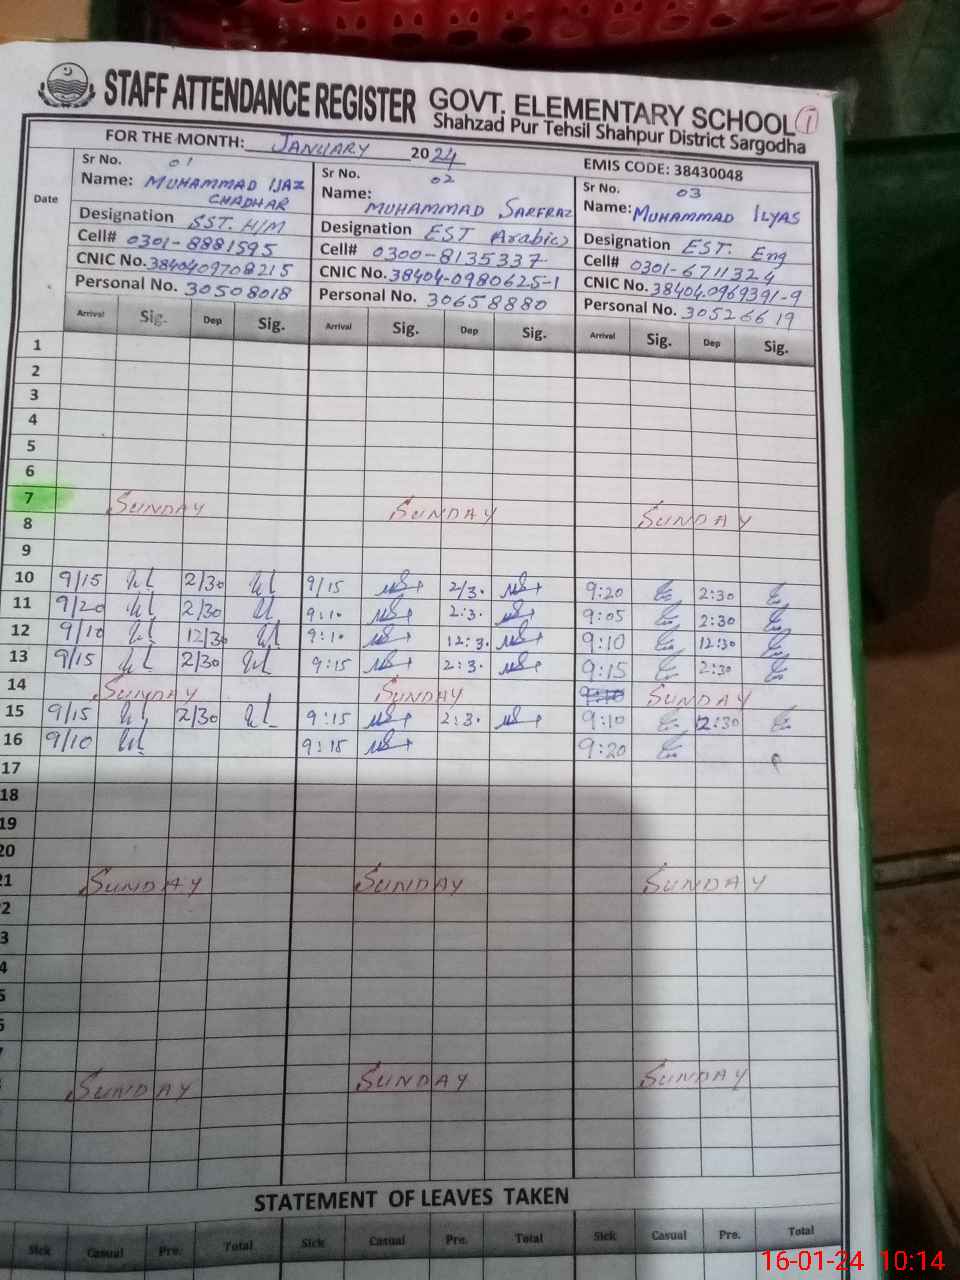 STAFF ATTENDANCE REGISTER GOVT. ELEMENTARY SCHOOL 1
Shahzad Pur Tehsil Shahpur District Sargodha
FOR THE MONTH: JANUARY 2024 EMIS CODE: 38430048
Date
Sr No. 01
Name: MUHAMMAD IJAZ
CHADHAR
Designation SST. H/M
Cell# 0301-8881595
CNIC No. 3840409708215
Personal No. 30508018
Sr No. 02
Name: MUHAMMAD SARFRAZ
Designation EST Arabic)
Cell# 0300-8135337
CNIC No. 38404-0980625-1
Personal No. 30658880
Sr No. 03
Name: MUHAMMAD ILYAS
Designation EST. Eng
Cell# 0301-6711324
CNIC No. 38404.0969391-9
Personal No. 30526619
Arrival Sig. Dep Sig. Arrival Sig. Dep Sig. Arrival Sig. Dep Sig.
1
2
3
4
5
6
7 SUNDAY SUNDAY SUNDAY
8
9
10 9/15 2/30 9/15 2/3. 9:20 2:30
11 9/20 2/30 9:10 2:3. 9:05 2:30
12 9/10 12/30 9:10 12:3. 9:10 12:30
13 9/15 2/30 9:15 2:3. 9:15 2:30
14 SUNDAY SUNDAY SUNDAY
15 9/15 2/30 9:15 2:3. 9:10 2:30
16 9/10 9:15 9:20
17
18
19
20
21 SUNDAY SUNDAY SUNDAY
2
3
4
5
6
7
SUNDAY SUNDAY SUNDAY
STATEMENT OF LEAVES TAKEN
Sick Casual Pre. Total Sick Casual Pre. Total Sick Casual Pre. Total
16-01-24 10:14